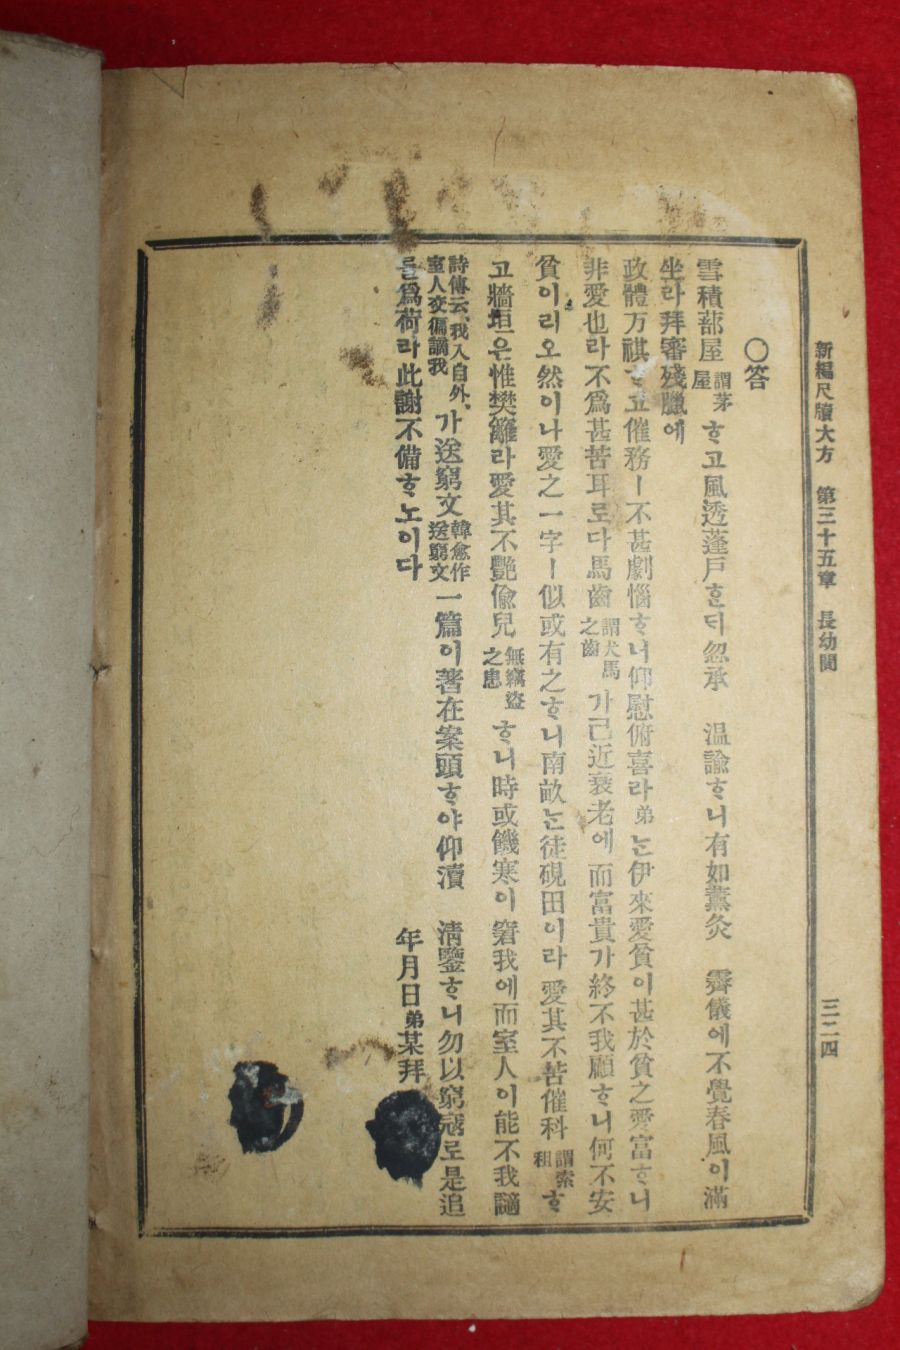 新編尺牘大方 第三十五章 長幼間 三二四
○答
雪積蔀屋謂茅屋ᄒᆞ고風透蓬戶ᄒᆞᆫ디忽承 溫諭ᄒᆞ니有如薰灸 霽儀에不覺春風이滿
坐라拜審殘臘에
政體万祺ᄒᆞ고催務ㅣ不甚劇惱ᄒᆞ니仰慰俯喜라弟ᄂᆞᆫ伊來愛貧이甚於貧之愛富ᄒᆞ니
非愛也라不爲甚苦耳로다馬齒謂犬馬之齒가已近衰老에而富貴가終不我顧ᄒᆞ니何不安
貧이리오然이나愛之一字ㅣ似或有之ᄒᆞ니南畝ᄂᆞᆫ徒硯田이라愛其不苦催科謂索租ᄒᆞ
고牆垣은惟樊籬라愛其不艶偸兒無竊盜之患ᄒᆞ니時或饑寒이窘我에而室人이能不我謫
詩傳云、我入自外、室人交徧謫我가送窮文韓愈作送窮文一篇이著在案頭ᄒᆞ야仰瀆 淸鑒ᄒᆞ니勿以窮寇로是追
를爲荷라此謝不備ᄒᆞ노이다
年月日弟某拜